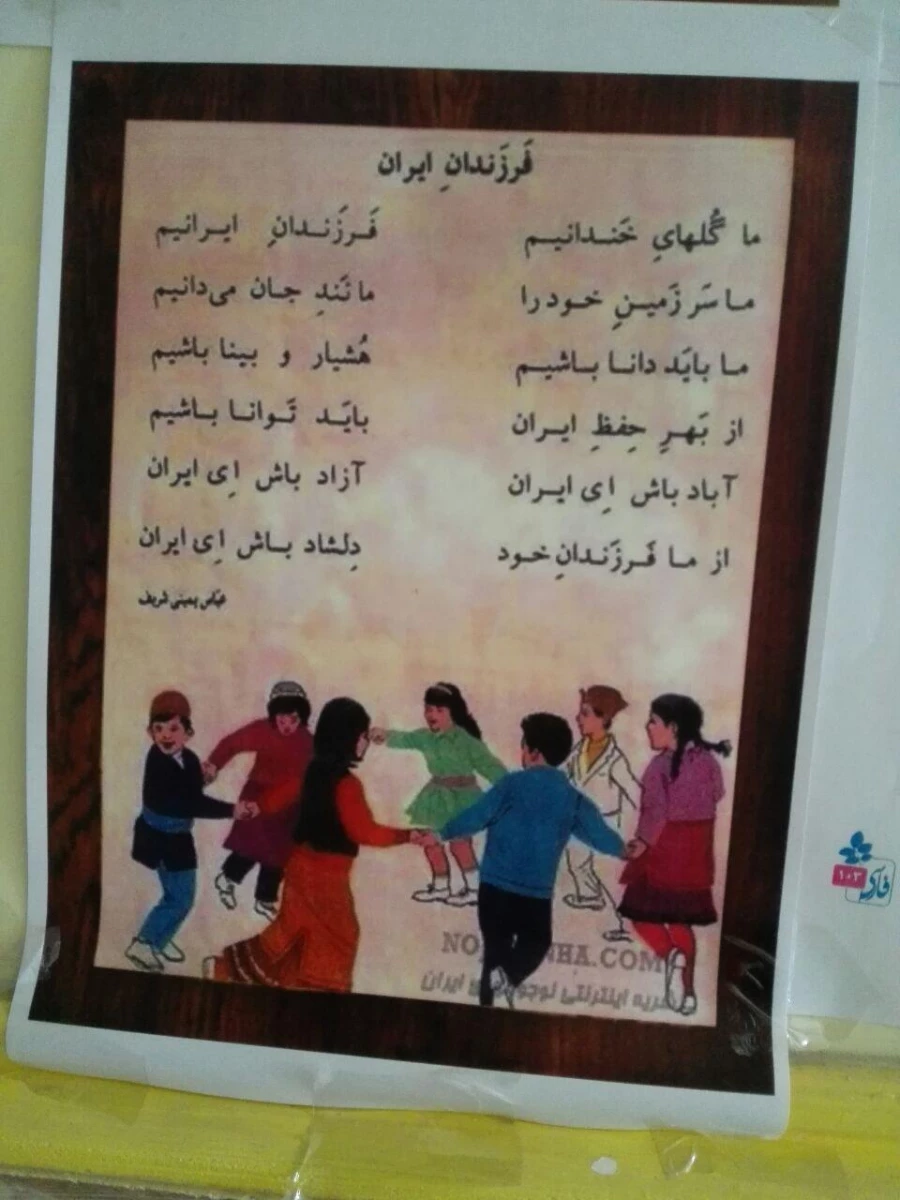 فَرزَندانِ ایران
ما گُلهایِ خَندانیم فَرزَندانِ ایرانیم
ما سَرزَمینِ خود را مانَندِ جان می‌دانیم
ما بایَد دانا باشیم هُشیار و بینا باشیم
از بَهرِ حِفظِ ایران بایَد تَوانا باشیم
آباد باش اِی ایران آزاد باش اِی ایران
از ما فَرزَندانِ خود دِلشاد باش اِی ایران
عبّاس یمینی شریف
HA.COM
اینترنتی ایران
فارسی
۱۰۳